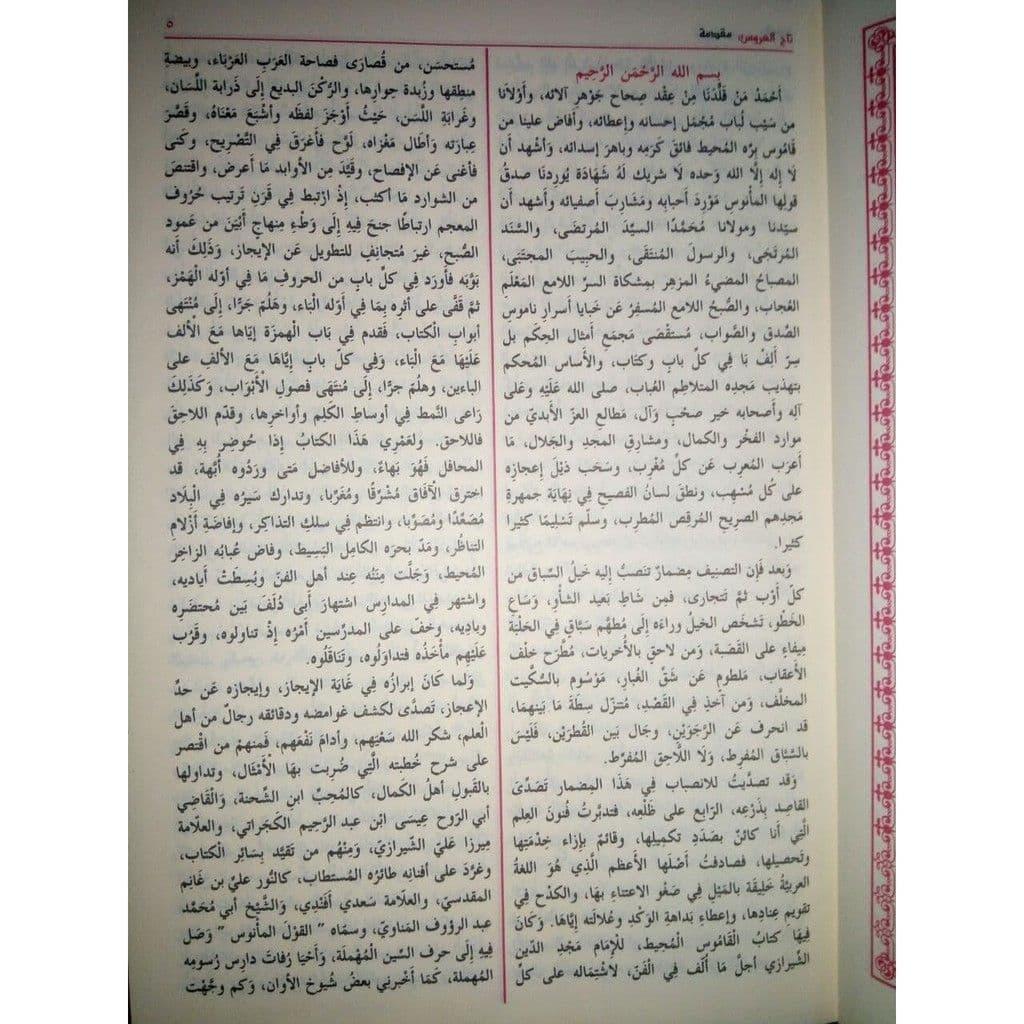 تاج العروس، مقدمة
٥
بسم الله الرَّحْمَن الرَّحِيم
أَحْمَدُ مَن قَلَّدَنَا مِنْ عِقْد صِحاح جَوْهر آلائه، وأَوْلانَا
من سَيْب لُباب مُجْمَل إحسانه وإعطائه، وأفاض علينا من
قَاموس بِرِّه المُحيط فائقَ كَرَمِه وباهرَ إسدائه، وَأشْهد أَن
لَا إِله إِلَّا الله وَحده لَا شريك لَهُ شَهَادَة يُورِدنَا صدقُ
قولِها المأْنوس مَوْرِدَ أَحبابِه ومَشَارِبَ أَصفيائه وأَشهد أَن
سيّدنا ومولانا مُحَمَّدًا السيِّدَ المُرتضَى، والسَّنَد
المُرتَجَى، والرسولَ المُنتَقَى، والحبِيبَ المجتَبَى،
المصباحُ المضيءُ المزهِر بمِشكاة السر اللامع المَعْلَمِ
العُجاب، والصُّبحُ اللامع المُسفِرُ عَن خبايا أَسرارِ ناموسِ
الصِّدق والصَّواب، مُستقْصَى مَجمَعِ أَمثال الحِكَم بل
سِرّ أَلِفْ بَا فِي كلّ بابٍ وكتَاب، والأَساس المُحكم
بتهذيب مَجدِه المتلاطِم العُباب، صلى الله عَلَيْهِ وَعَلى
آلِه وأَصحابه خير صحْبٍ وَآل، مَطَالعِ العزّ الأَبديّ من
موارد الفخْر والكمال، ومشارِقِ المجدِ والجَلال، مَا
أَعرَب المُعرِب عَن كلِّ مُغْرِب، وسَحَب ذيْلَ إِعجازِه
على كُل مُسْهِب، ونطَق لسانُ الفصيح فِي نِهَايَة جَمهرةِ
مَجدِهم الصريح المُرقِص المُطرِب، وسلّم تَسْلِيمًا كثيرا
كثيرا.
وَبعد فَإِن التصنِيف مِضمارٌ تَنصبُّ إليه خَيلُ السِّباق من
كلّ أَوْب ثمَّ تَتجارى، فَمِن شَاطٍ بَعيد الشأْو، وَسَاعِ
الخَطْو، تَشخَص الخيلُ وراءَه إِلَى مُطهَّم سَبَّاق فِي الحَلْبَة
مِيفاءٍ على القَصَبة، وَمن لاحقٍ بالأُخريات، مُطَّرَحٍ خلْف
الأَعقاب، مَلطومٍ عَن شَقِّ الغُبار، مَوْسُومٍ بالسُّكَيت
المخلَّف، وَمن آخذٍ فِي القَصْد، مُتنزّل سِطَةَ مَا بَينهمَا،
قد انحرف عَن الرَّجَوَيْن، وجَال بَين القُطْرَين، فَلَيْسَ
بالسَّبَّاق المُفرِط، وَلَا اللَّاحق المُفرِّط.
وَقد تصدَّيتُ للانصباب فِي هَذَا المِضمار تَصَدِّيَ
القاصِد بِذَرْعِه، الرَّابع على ظَلْعِه، فتدبَّرتُ فنونَ العِلم
الَّتِي أَنا كائنٌ بصَدَدِ تكميلِها، وقائمٌ بإِزاء خِدْمَتِها
وتَحصيلها، فصادَفتُ أَصْلَها الأَعظم الَّذِي هُوَ اللغةُ
العربيَّةُ خَلِيقَة بالمَيْلِ فِي صَغْوِ الاعتناءِ بهَا، والكدْحِ فِي
تقويمِ عِنادِها، وإعطاءِ بَداهة الوَكْدِ وعُلالَتِه إِيَّاهَا. وَكَانَ
فِيهَا كتابُ الْقَامُوس الْمُحِيط، للْإِمَام مَجْدِ الدّين
الشِّيرازِي أجلَّ مَا أُلِّف فِي الْفَنّ، لاشْتِماله على كلّ
مُستحسَن، من قُصارَى فَصاحة العَرَبِ العَرْبَاء، وبيضةِ
منطِقِها وزُبدة حِوارِها، والرُّكْنَ البديع إِلَى ذَرابة اللِّسَان،
وغَرابَةِ اللَّسَن، حَيْثُ أَوْجَزَ لفْظَه وأَشْبَعَ مَعْنَاهُ، وقَصَّرَ
عِبارَته وأَطال مَغْزاه، لَوَّح فأَغرَق فِي التَّصْرِيح، وكَنى
فأَغنى عَن الإِفصاح، وقَيَّدَ مِن الأَوابِد مَا أَعرض، واقتنصَ
من الشوارد مَا أَكثب، إِذْ ارْتبطَ فِي قَرَنِ تَرتيب حُرُوف
المعجم ارتباطًا جنحَ فِيهِ إِلَى وَطْءِ مِنهاجٍ أَبْيَنَ من عَمود
الصُّبح، غيرَ مُتجانِفٍ للتطويلِ عَن الإِيجاز، وَذَلِكَ أَنه
بَوَّبَه فأَورَد فِي كلّ بابٍ من الحروفِ مَا فِي أَوّله الْهَمْز،
ثمَّ قَفَّى على أَثرِه بِمَا فِي أَوَّله الْبَاء، وهَلُمَّ جَرًّا، إِلَى مُنْتَهى
أَبوابِ الْكتاب، فَقدم فِي بَاب الْهمزَة إِيَّاهَا مَعَ الأَلف
عَلَيْهَا مَعَ الْبَاء، وَفِي كلّ بابٍ إِيَّاهَا مَعَ الأَلفِ على
الباءين، وهلُمَ جرًّا، إِلَى مُنْتَهى فصولِ الْأَبْوَاب، وَكَذَلِكَ
رَاعى النَّمط فِي أوساطِ الكَلِم وأواخِرها، وقدّم اللاحِقَ
فاللاحق. ولَعَمْرِي هَذَا الكتابُ إِذَا حُوضِر بِهِ فِي
المحافل فَهُوَ بَهاءٌ، وللأفاضلِ مَتى ورَدُوه أُبَّهة، قد
اخترق الْآفَاق مُشرِّقًا ومُغَرِّبا، وتدارك سَيرُه فِي الْبِلَاد
مُصَعِّدًا ومُصَوِّبا، وانتظم فِي سلكِ التذاكِر، وإفاضَةِ أَزْلامِ
التناظُر، ومَدّ بحرَه الكامِلَ البَسيط، وفاض عُبابُه الزاخِر
المُحيط، وَجَلَّت مِنَنُه عِند أَهلِ الفنّ وبُسِطَتْ أَياديه،
واشتهر فِي المدارِس اشتهارَ أَبى دُلَفَ بَين مُحتضَرِه
وبادِيه، وخَفّ على المدرّسين أَمْرُه إِذْ تناولوه، وقَرُب
عَلَيْهِم مأْخَذُه فتداوَلُوه، وتَنَاقَلُوه.
وَلما كَانَ إِبرازُه فِي غَايَة الإِيجاز، وإيجازه عَن حدِّ
الإِعجاز، تَصدَّى لكشف غوامضِه ودقائقه رجالٌ من أَهل
الْعلم، شكر الله سَعْيَهم، وأَدامَ نَفْعَهم، فَمنهمْ من اقْتصر
على شرح خُطبته الَّتِي ضُربت بهَا الْأَمْثَال، وتداولها
بالقَبولِ أَهلُ الكَمال، كالمُحِبِّ ابنِ الشَّحنة، وَالْقَاضِي
أَبي الرَّوح عِيسَى ابْن عبد الرَّحِيم الكَجَراتي، والعلَّامة
مِيرزا عَليّ الشِّيرازِيّ، وَمِنْهُم من تقيَّد بِسَائِر الْكتاب،
وغرَّدَ على أَفنانِه طائِرُه المُستطاب، كالنُّور عليِّ بن غَانِم
المقدسيّ، والعلَّامة سَعدي أَفَنْدِي، وَالشَّيْخ أَبي مُحَمَّد
عبد الرؤوف المَناوِيّ، وسمّاه " القوْلَ المأْنوس " وَصَل
فِيهِ إِلَى حرف السِّين الْمُهْملَة، وَأَحيَا رُفاتَ دارِس رُسومِه
المُهملة، كَمَا أَخْبرنِي بعضُ شُيوخ الأَوان، وَكم وجَّهْت